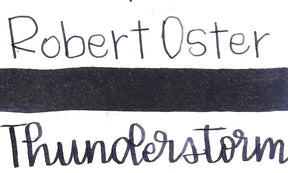 Robert Oster
Thunderstorm